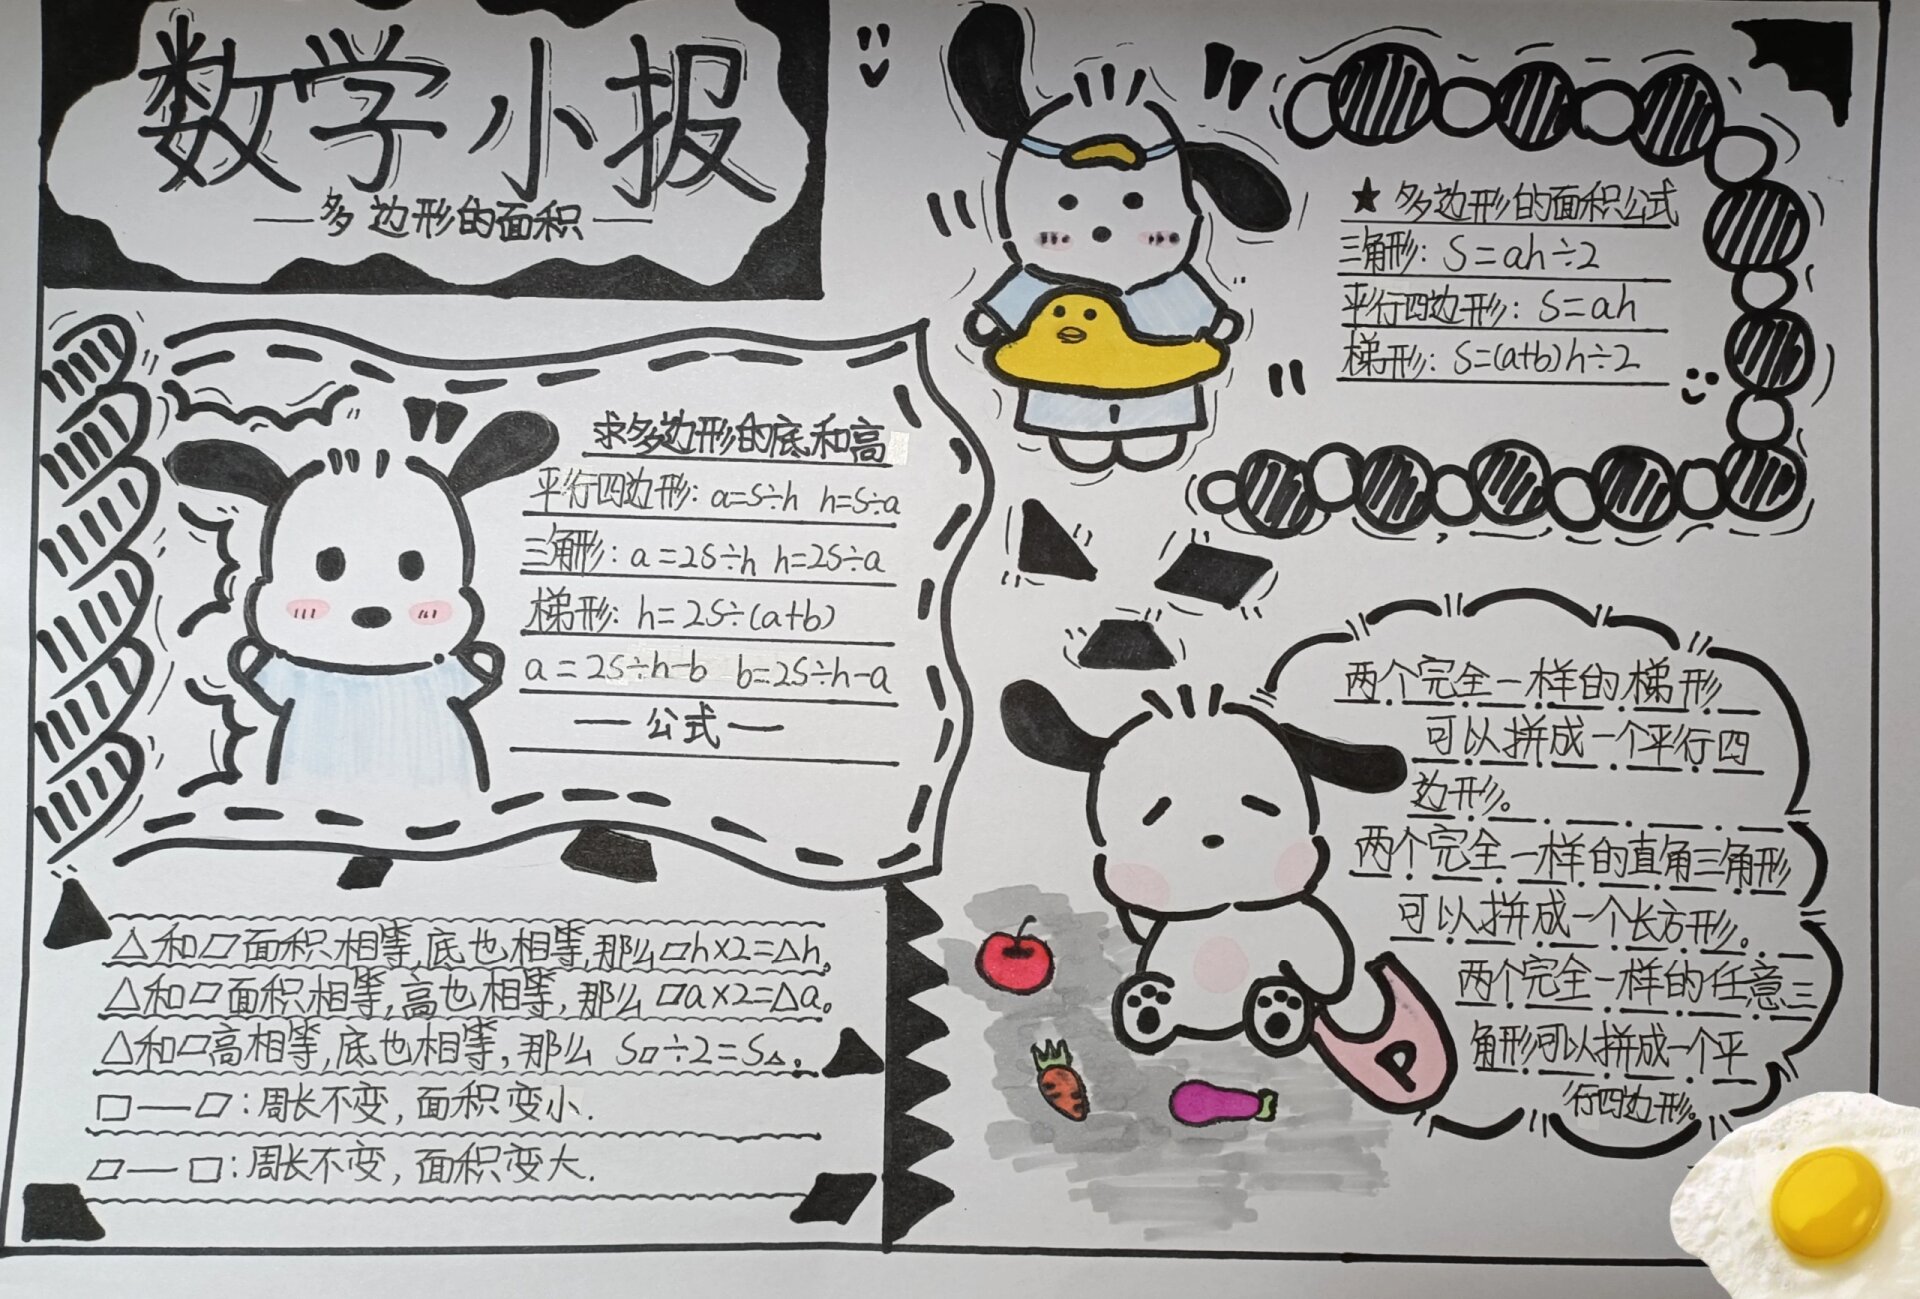 数学小报
—多边形的面积—
★多边形的面积公式
三角形：S=ah÷2
平行四边形：S=ah
梯形：S=(a+b)h÷2
求多边形的底和高
平行四边形：a=S÷h h=S÷a
三角形：a=2S÷h h=2S÷a
梯形：h=2S÷(a+b)
a=2S÷h-b b=2S÷h-a
—公式—
△和▱面积相等,底也相等,那么▱h×2=△h。
△和▱面积相等,高也相等,那么▱a×2=△a。
△和▱高相等,底也相等,那么 S▱÷2=S△.
□—▱:周长不变,面积变小.
▱—□:周长不变,面积变大.
两个完全一样的梯形
可以拼成一个平行四
边形。
两个完全一样的直角三角形
可以拼成一个长方形。
两个完全一样的任意三
角形可以拼成一个平
行四边形。
P